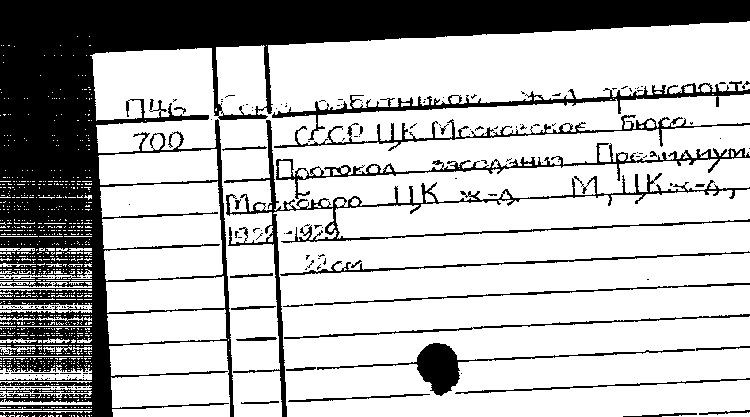 П46 Союз работников ж-д транспорта
700 СССР ЦК Московское Бюро.
Протокол заседания Президиума
Москбюро ЦК ж-д М, ЦК ж-д,
1928-1929.
22 см